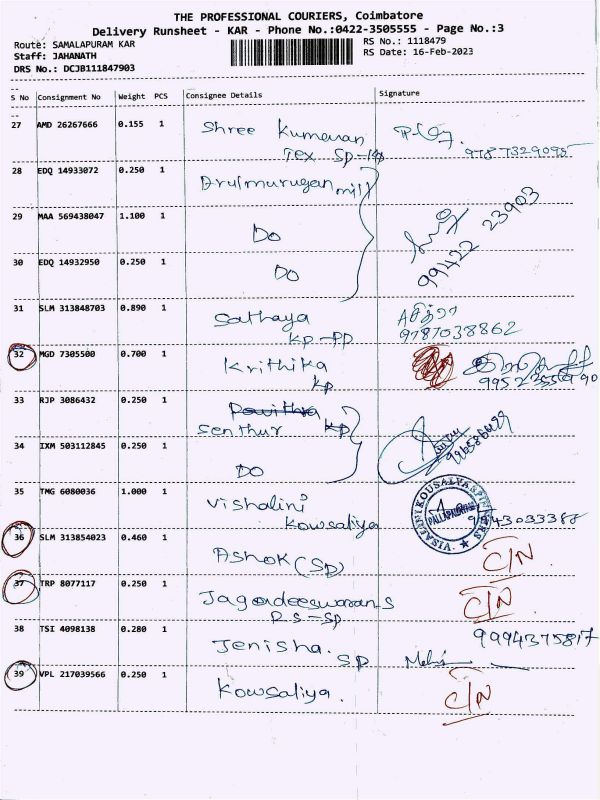 THE PROFESSIONAL COURIERS, Coimbatore
Delivery Runsheet - KAR - Phone No.:0422-3505555 - Page No.:3
Route: SAMALAPURAM KAR
RS No.: 1118479
Staff: JAHANATH
RS Date: 16-Feb-2023
DRS No.: DCJB111847903
S No Consignment No Weight PCS Consignee Details Signature
27 AMD 26267666 0.155 1 Shree Kumaran
Tex SP-KP 9787329095
28 EDQ 14933072 0.250 1 Arulmurugan mill
29 MAA 569438047 1.100 1 Do 99422 23903
30 EDQ 14932950 0.250 1 Do
31 SLM 313848703 0.890 1 Sathaya
KP-PP 9787038862
32 MGD 7305500 0.700 1 Krithika
KP
33 RJP 3086432 0.250 1 Pavithra
Senthur KP
34 IXM 503112845 0.250 1 Do
35 TMG 6080036 1.000 1 Vishalini
Kowsaliya
36 SLM 313854023 0.460 1 Ashok (SP) C/N
37 TRP 8077117 0.250 1 Jagadeeswaran-S C/N
P.S-SP
38 TSI 4098138 0.280 1 Jenisha. 9994375817
SP
39 VPL 217039566 0.250 1 Kowsaliya. C/N